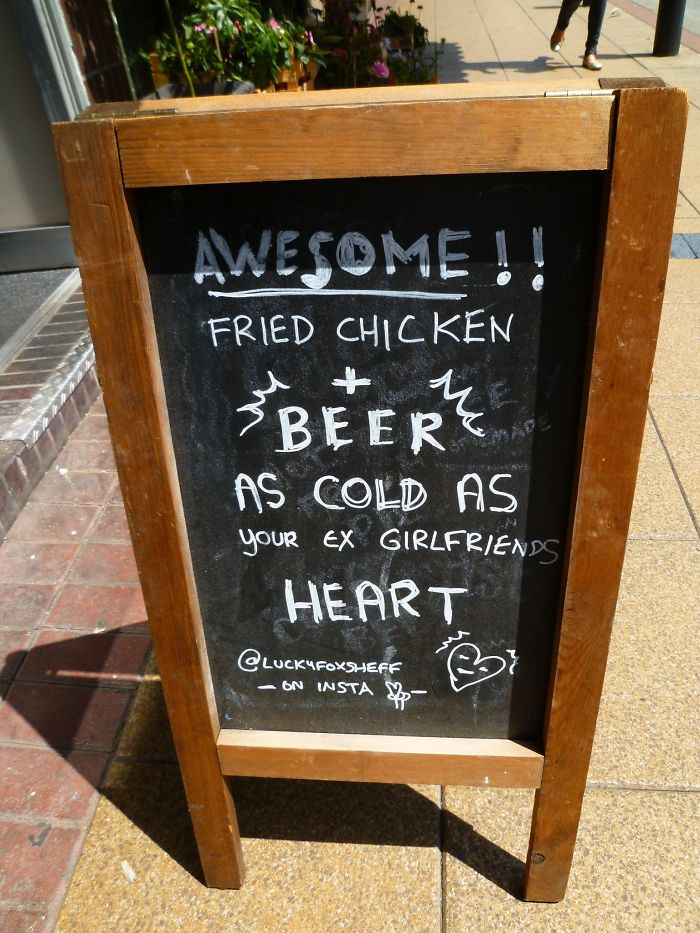 AWESOME!!
FRIED CHICKEN
+
BEER
AS COLD AS
YOUR EX GIRLFRIENDS
HEART
@LUCKYFOXSHEFF
- ON INSTA -